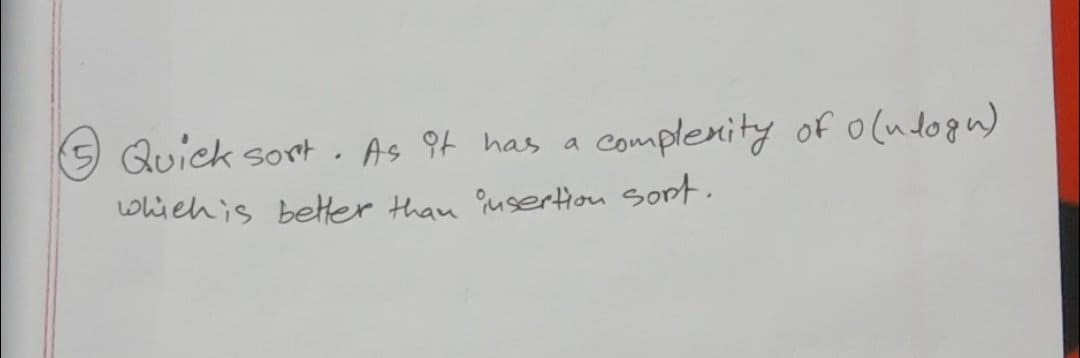 ⑤ Quick sort. As it has a complexity of O(nlogn)
which is better than insertion sort.